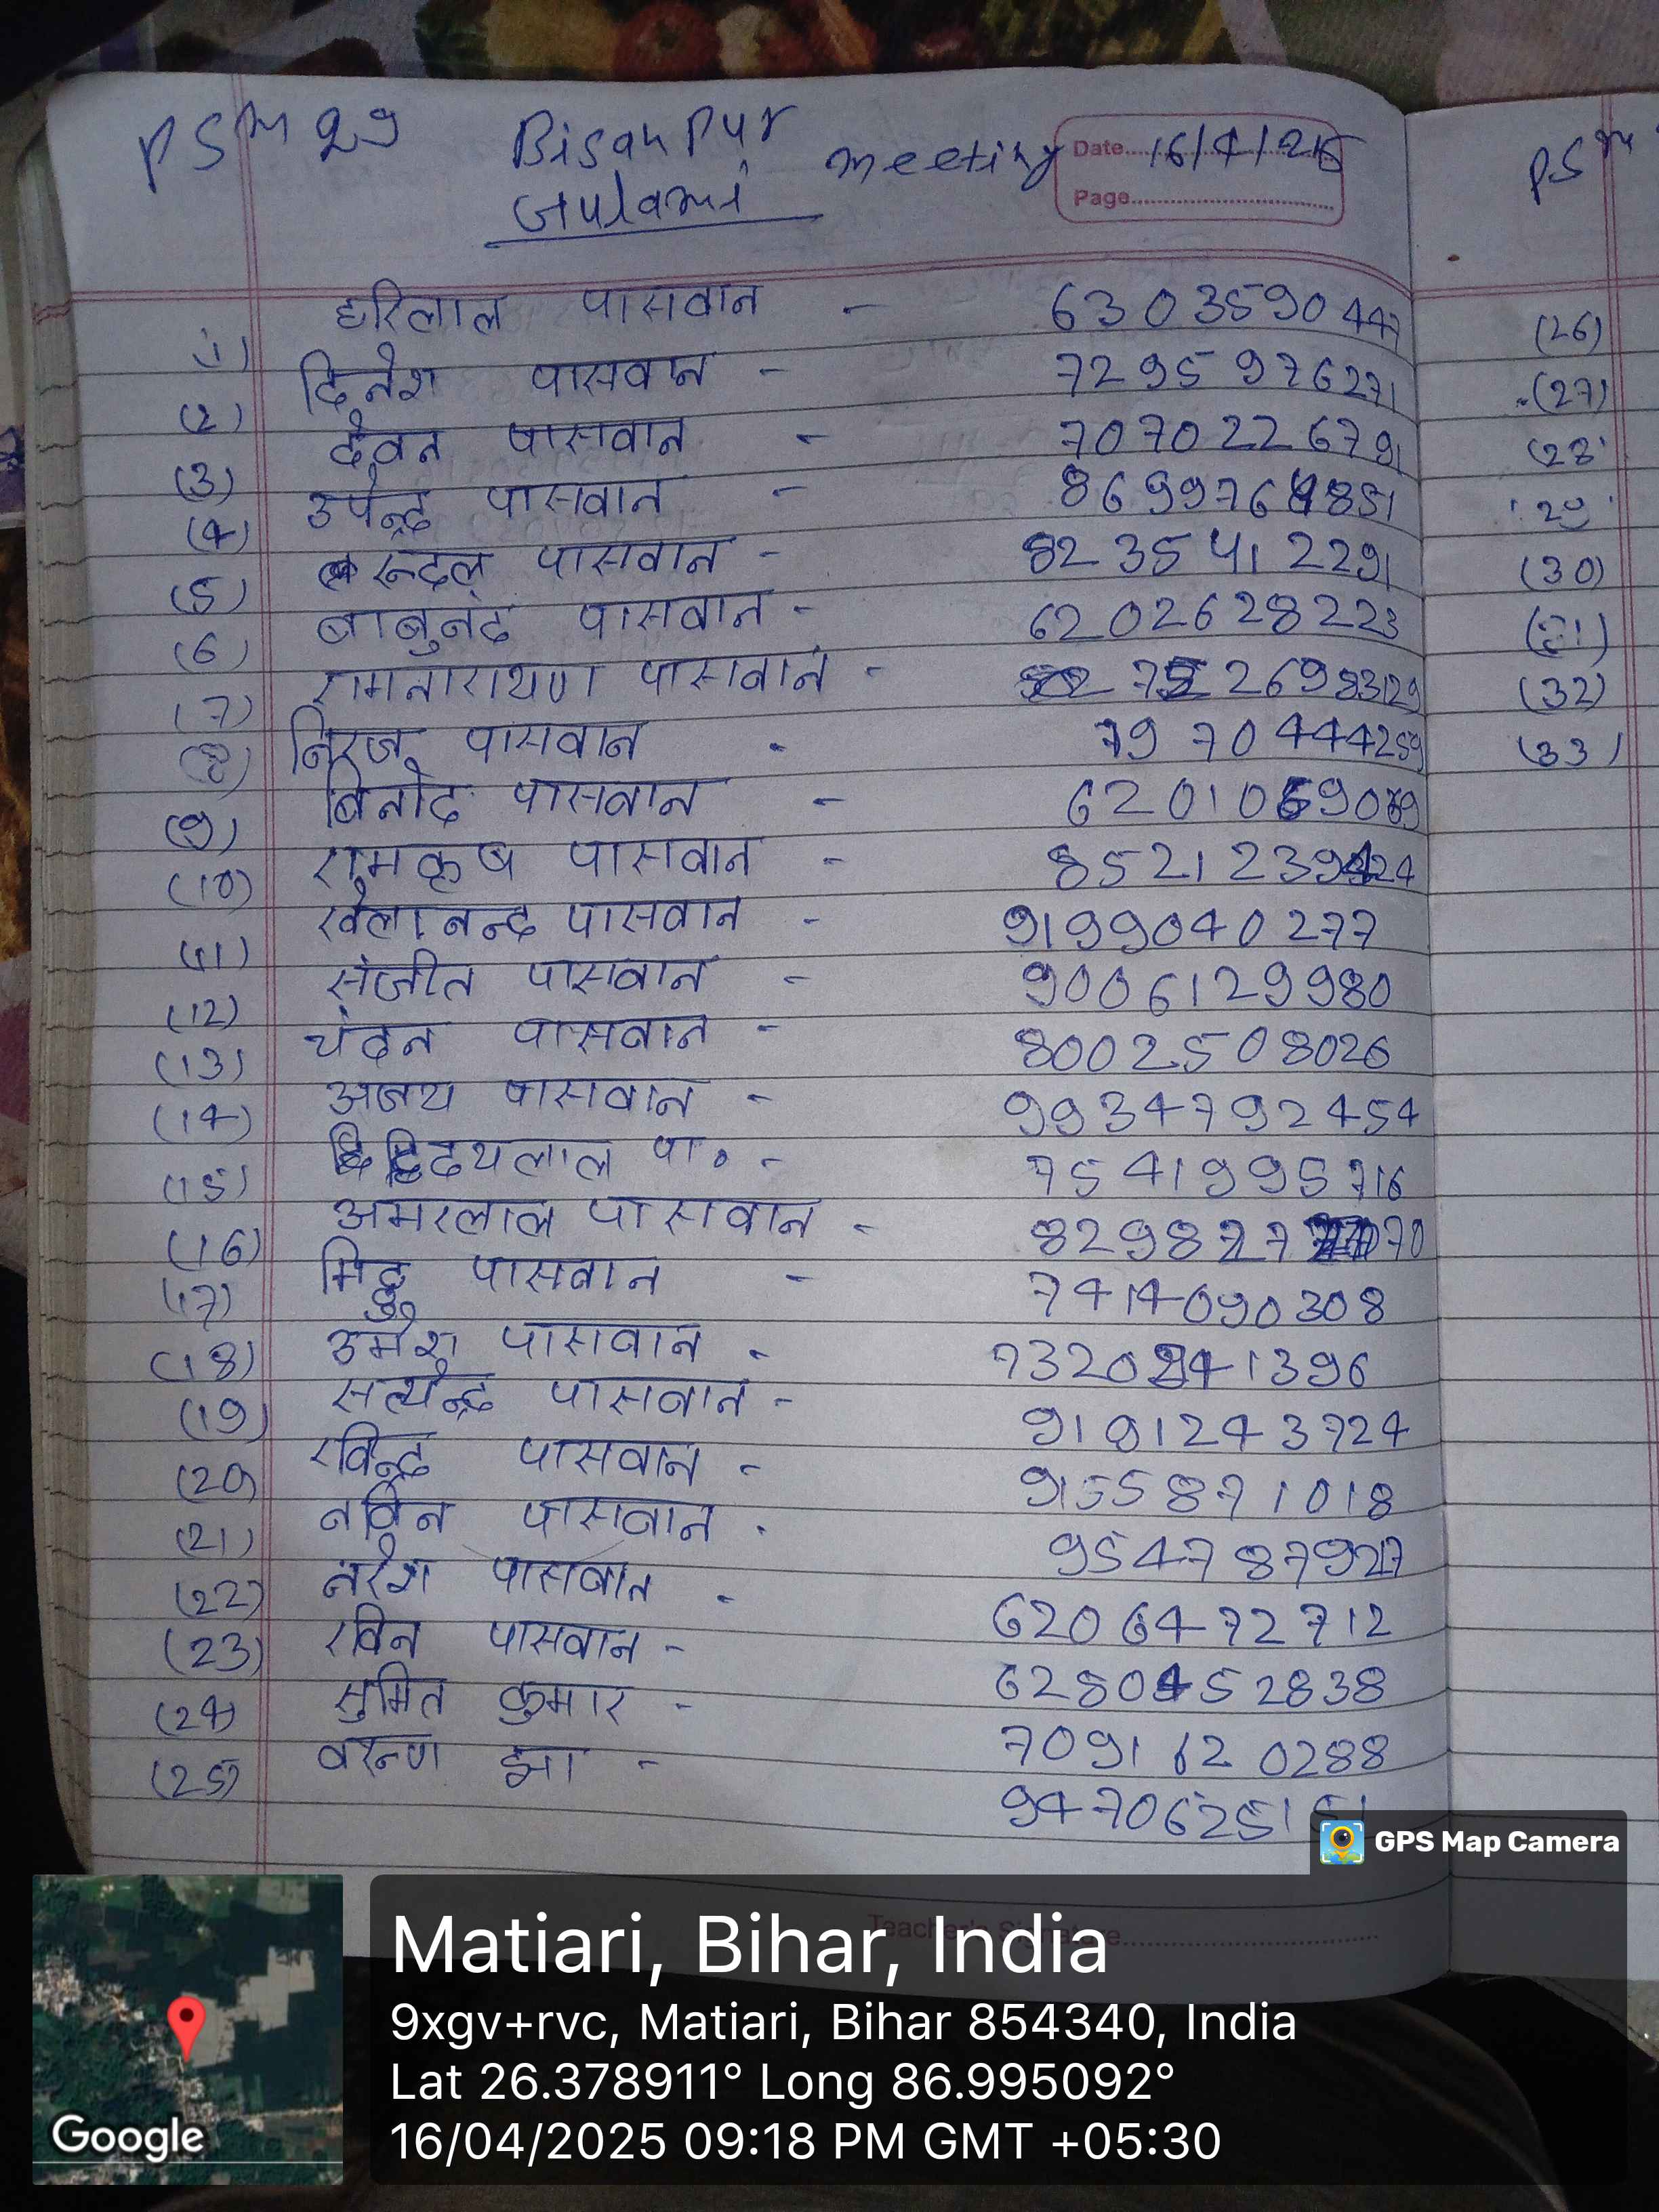 PSM 29 Bisanpur meeting Date 16/4/25
Gulami Page
हरिलाल पासवान - 6303590447
(1)
दिनेश पासवान - 7295976271
(2)
देवन पासवान - 7070226791
(3)
उपेन्द्र पासवान - 8699764851
(4)
पासवान - 8235412291
(5)
बाबुनंद पासवान - 6202628223
(6)
रामनारायण पासवान -
(7)
निरज पासवान - 7970444259
(8)
बिनोद पासवान -
(9)
रामकृष पासवान -
(10)
खेलानन्द पासवान - 9199040277
(11)
संजीत पासवान - 9006129980
(12)
चंदन पासवान - 8002508026
(13)
अजय पासवान - 9934792454
(14)
हिदयलाल पा० - 7541995716
(15)
अमरलाल पासवान -
(16)
मिठ्ठु पासवान - 7414090308
(17)
उमेश पासवान -
(18)
सत्येन्द्र पासवान - 9191243724
(19)
रविन्द्र पासवान - 9155871018
(20)
नविन पासवान - 954787927
(21)
नरेश पासवान - 6206472712
(22)
रविन पासवान - 6280452838
(23)
सुमित कुमार - 7091620288
(24)
वरुण झा - 9470625151
(25)
PSM
(26)
(27)
(28)
29
(30)
(31)
(32)
(33)
Teacher's Signature
GPS Map Camera
Matiari, Bihar, India
9xgv+rvc, Matiari, Bihar 854340, India
Lat 26.378911° Long 86.995092°
16/04/2025 09:18 PM GMT +05:30
Google